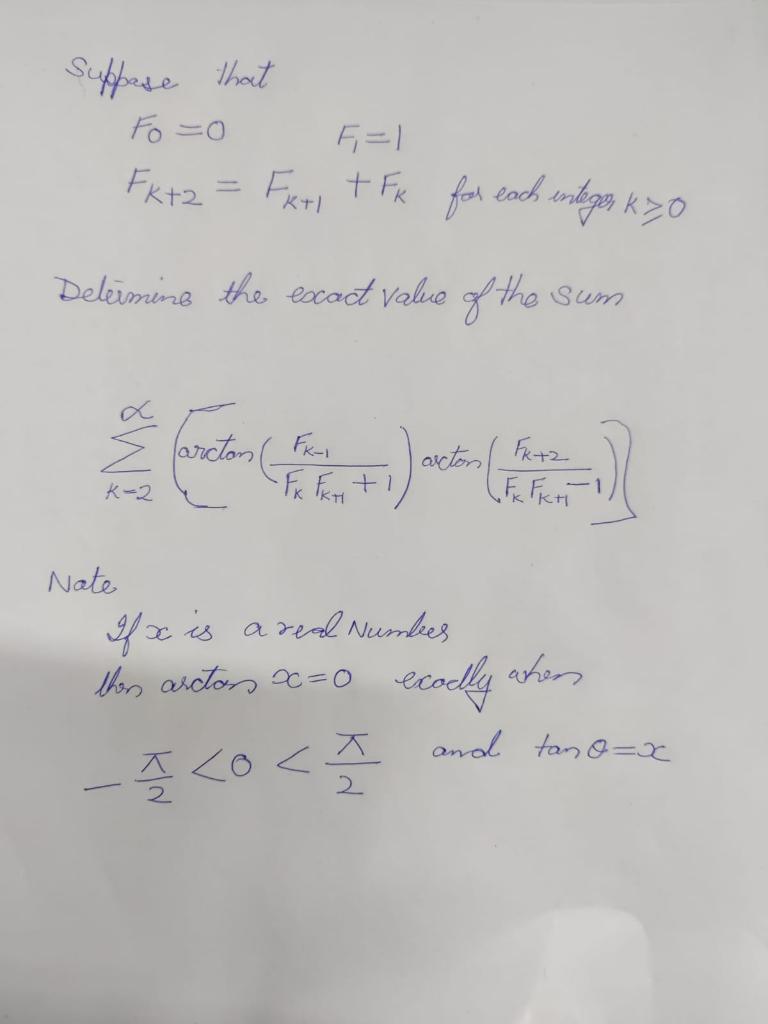 Suppose that
F₀ = 0 F₁ = 1
F_{K+2} = F_{K+1} + F_K for each integer K ≥ 0
Determine the exact value of the sum
∑_{K=2}^{∝} [arctan (F_{K-1} / (F_K F_{K+1} + 1)) arctan (F_{K+2} / (F_K F_{K+1} - 1))]
Note
If x is a real Number
then arctan x = 0 exactly when
-π/2 < 0 < π/2 and tan θ = x